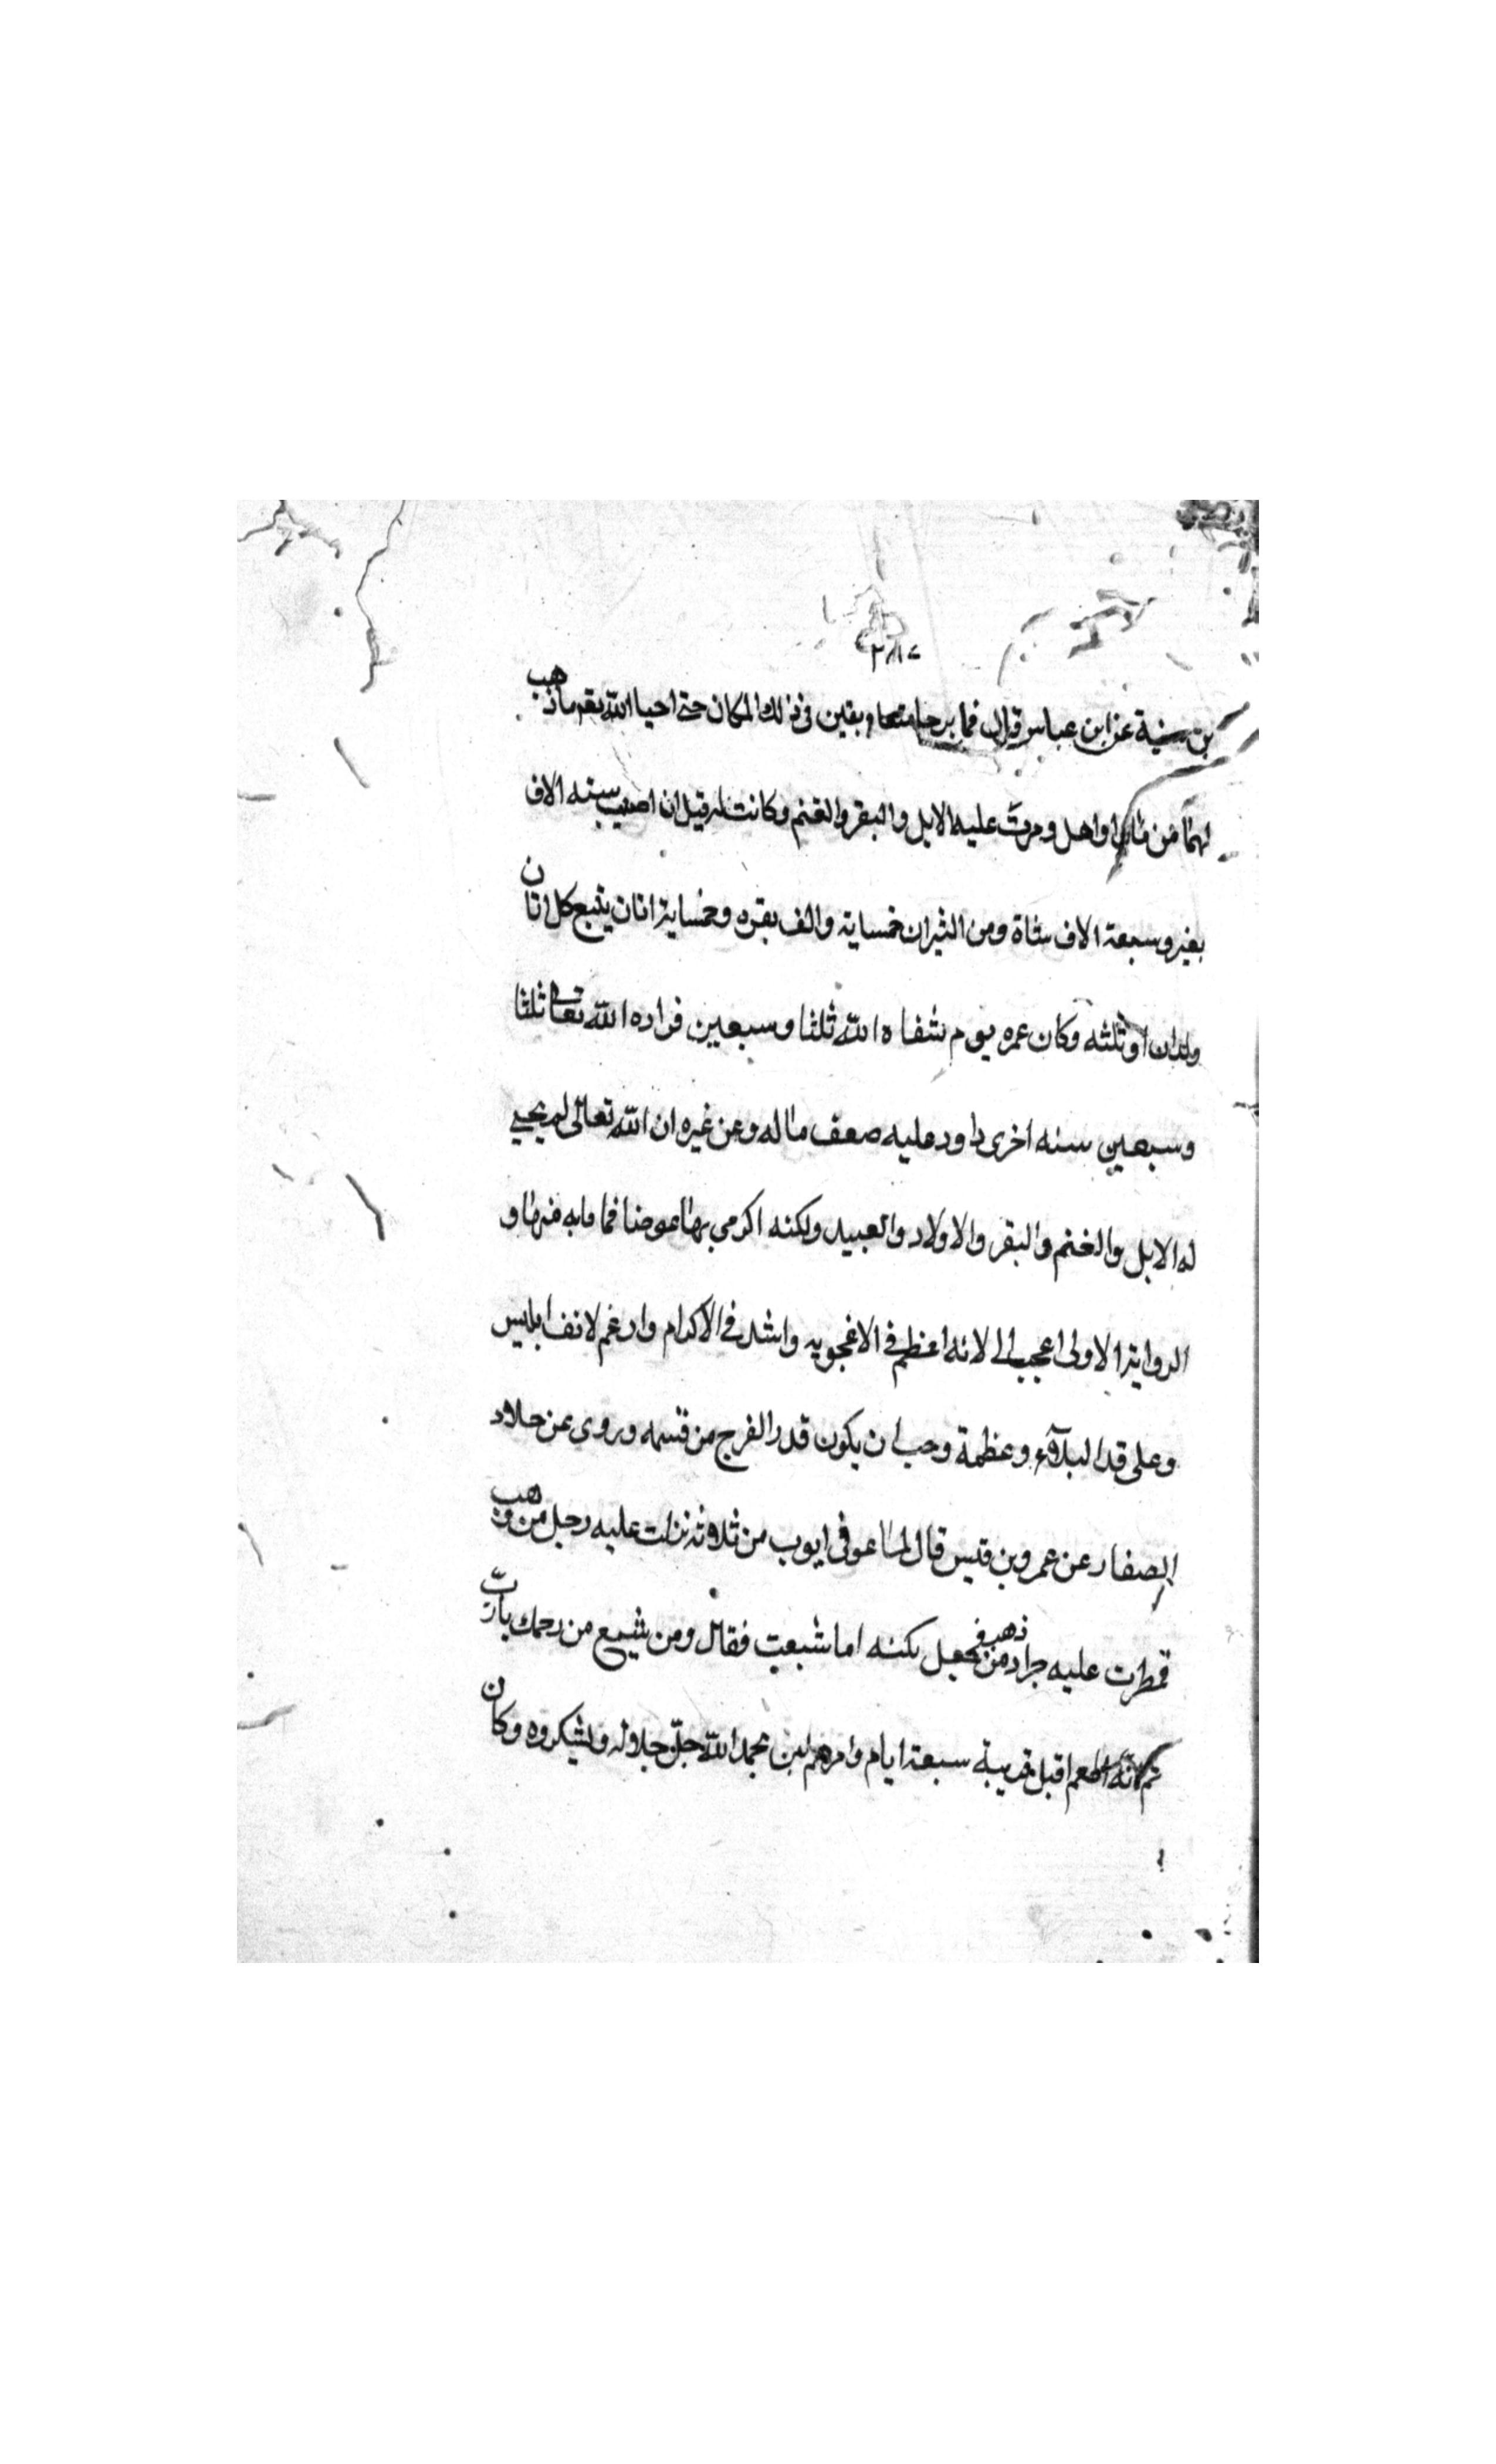 بن سنية عن ابن عباس قال فما برحا معا وبقين فى ذلك المكان حتى احيا الله بعد ما ذهب
لهما من مال واهل ومرت عليه الابل والبقر والغنم وكانت له قبل ان اصيب سته الاف
بغير وسبعة الاف شاة ومن الثيران خمساية والف بقره وخمساية اتان يتبع كل اتان
ولدان او ثلثه وكان عمره يوم شفاه الله ثلثا وسبعين فزاده الله تعالى ثلثا
وسبعين سنه اخرى داود عليه صعف ماله وعن غيره ان الله تعالى لم يحيى
له الابل والغنم والبقر والاولاد والعبيد ولكنه اكرمى بها عوضا فما مابه منها و
الروايتر الاولى اعجب الى لانه اعظم فى الاعجوبه واشد فى الاكرام وارغم لانف ابليس
وعلى قد البلآء وعظمة وجب ان يكون قدر الفرج من قسمه وروى عن خلاد
الصفار عن عمرو بن قيس قال لما عوفى ايوب من ثلاثه نزلت عليه رجل من وهب
قمطرت عليه جراد من ذهب فجعل يكنه اما شبعت فقال ومن شبع من رحمك يا رب
ثم انه اطعم اقبل قريبة سبعة ايام وامرهم ابن بحمد الله جل جلاله ويشكروه وكان